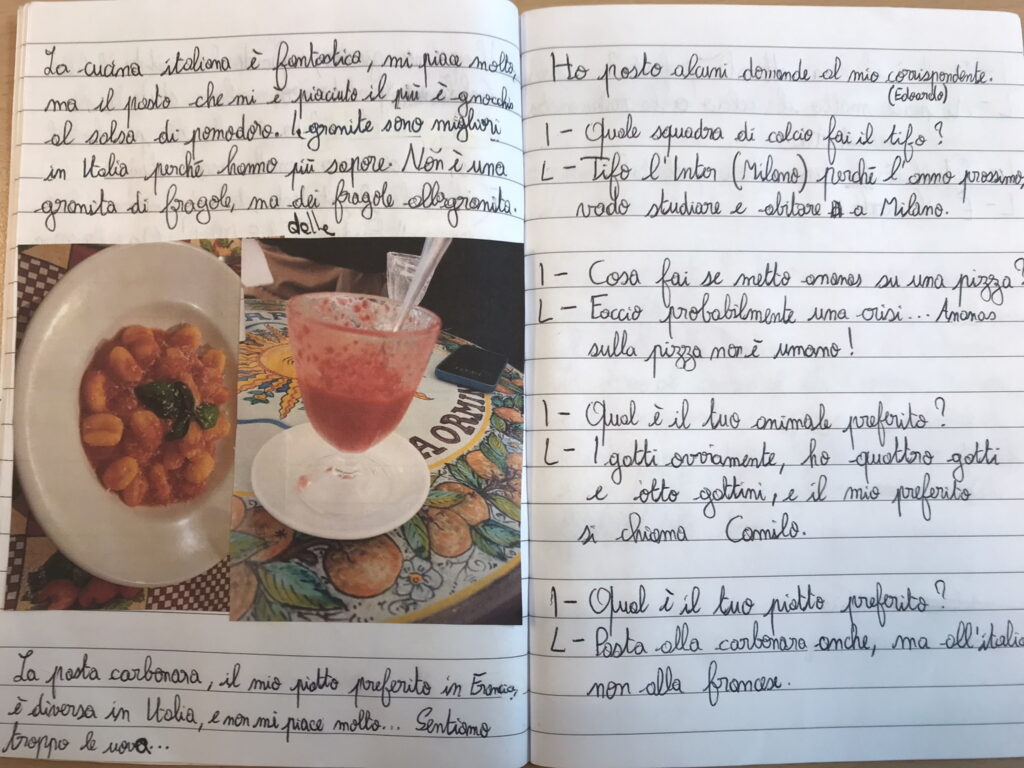 La cucina italiana è fantastica, mi piace molto,
ma il pasto che mi è piaciuto il più è gnocchis
al salsa di pomodoro. I granite sono migliori
in Italia perché hanno più sapore. Non è una
granita di fragole, ma dei fragole alla granita.
delle
TAORMIN
La pasta carbonara, il mio piatto preferito in Francia,
è diversa in Italia, e non mi piace molto... Sentiamo
troppo le uova...
Ho posto alcuni domande al mio corrispondente.
(Edoardo)
I - Quale squadra di calcio fai il tifo?
L - Tifo l'Inter (Milano) perché l'anno prossimo,
vado studiare e abitare a Milano.
I - Cosa fai se metto ananas su una pizza?
L - Faccio probabilmente una crisi... Ananas
sulla pizza non è umano!
I - Qual è il tuo animale preferito?
L - I gatti ovviamente, ho quattro gatti
e otto gattini, e il mio preferito
si chiama Camilo.
I - Qual è il tuo piatto preferito?
L - Pasta alla carbonara anche, ma all'italia
non alla francese.